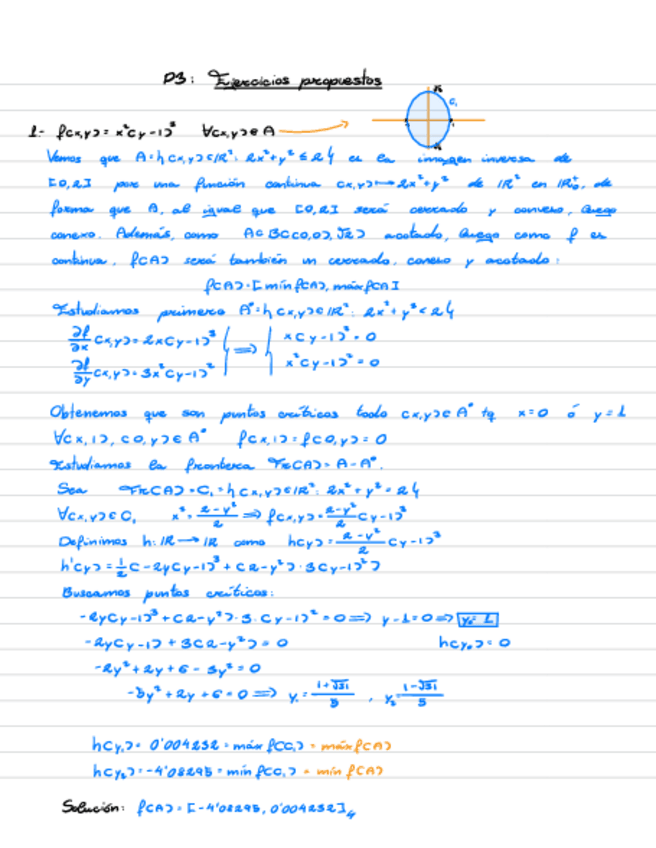 D3: Ejercicios propuestos
C₁
1.- f(x,y) = x²(y-1)³ ∀(x,y)∈A
Vemos que A = {(x,y)∈ℝ²: 2x²+y² ≤ 2} es la imagen inversa de
[0,2] por una función continua (x,y)↦2x²+y² de ℝ² en ℝ₀⁺, de
forma que A, al igual que [0,2] será cerrado y convexo, luego
conexo. Además, como A⊂B((0,0),√2) acotado, luego como f es
continua, f(A) será también un cerrado, conexo y acotado:
f(A) = [mín f(A), máx f(A)]
Estudiamos primero A° = {(x,y)∈ℝ²: 2x²+y² < 2}
∂f/∂x (x,y) = 2x(y-1)³ ⟹ x(y-1)³ = 0
∂f/∂y (x,y) = 3x²(y-1)² x²(y-1)² = 0
Obtenemos que son puntos críticos todo (x,y)∈A° tq x=0 ó y=1
∀(x,1), (0,y)∈A° f(x,1) = f(0,y) = 0
Estudiamos la frontera Fr(A) = A-A°.
Sea Fr(A) = C₁ = {(x,y)∈ℝ²: 2x²+y² = 2}
∀(x,y)∈C₁ x² = (2-y²)/2 ⟹ f(x,y) = (2-y²)/2 (y-1)³
Definimos h: ℝ→ℝ como h(y) = (2-y²)/2 (y-1)³
h'(y) = 1/2 (-2y(y-1)³ + (2-y²)·3(y-1)²)
Buscamos puntos críticos:
-2y(y-1)³ + (2-y²)·3·(y-1)² = 0 ⟹ y-1=0 ⟹ y₀ = 1
-2y(y-1) + 3(2-y²) = 0 h(y₀) = 0
-2y² + 2y + 6 - 3y² = 0
-5y² + 2y + 6 = 0 ⟹ y₁ = (1+√31)/5 , y₂ = (1-√31)/5
h(y₁) = 0'004232 = máx f(C₁) = máx f(A)
h(y₂) = -4'08295 = mín f(C₁) = mín f(A)
Solución: f(A) = [-4'08295, 0'004232]